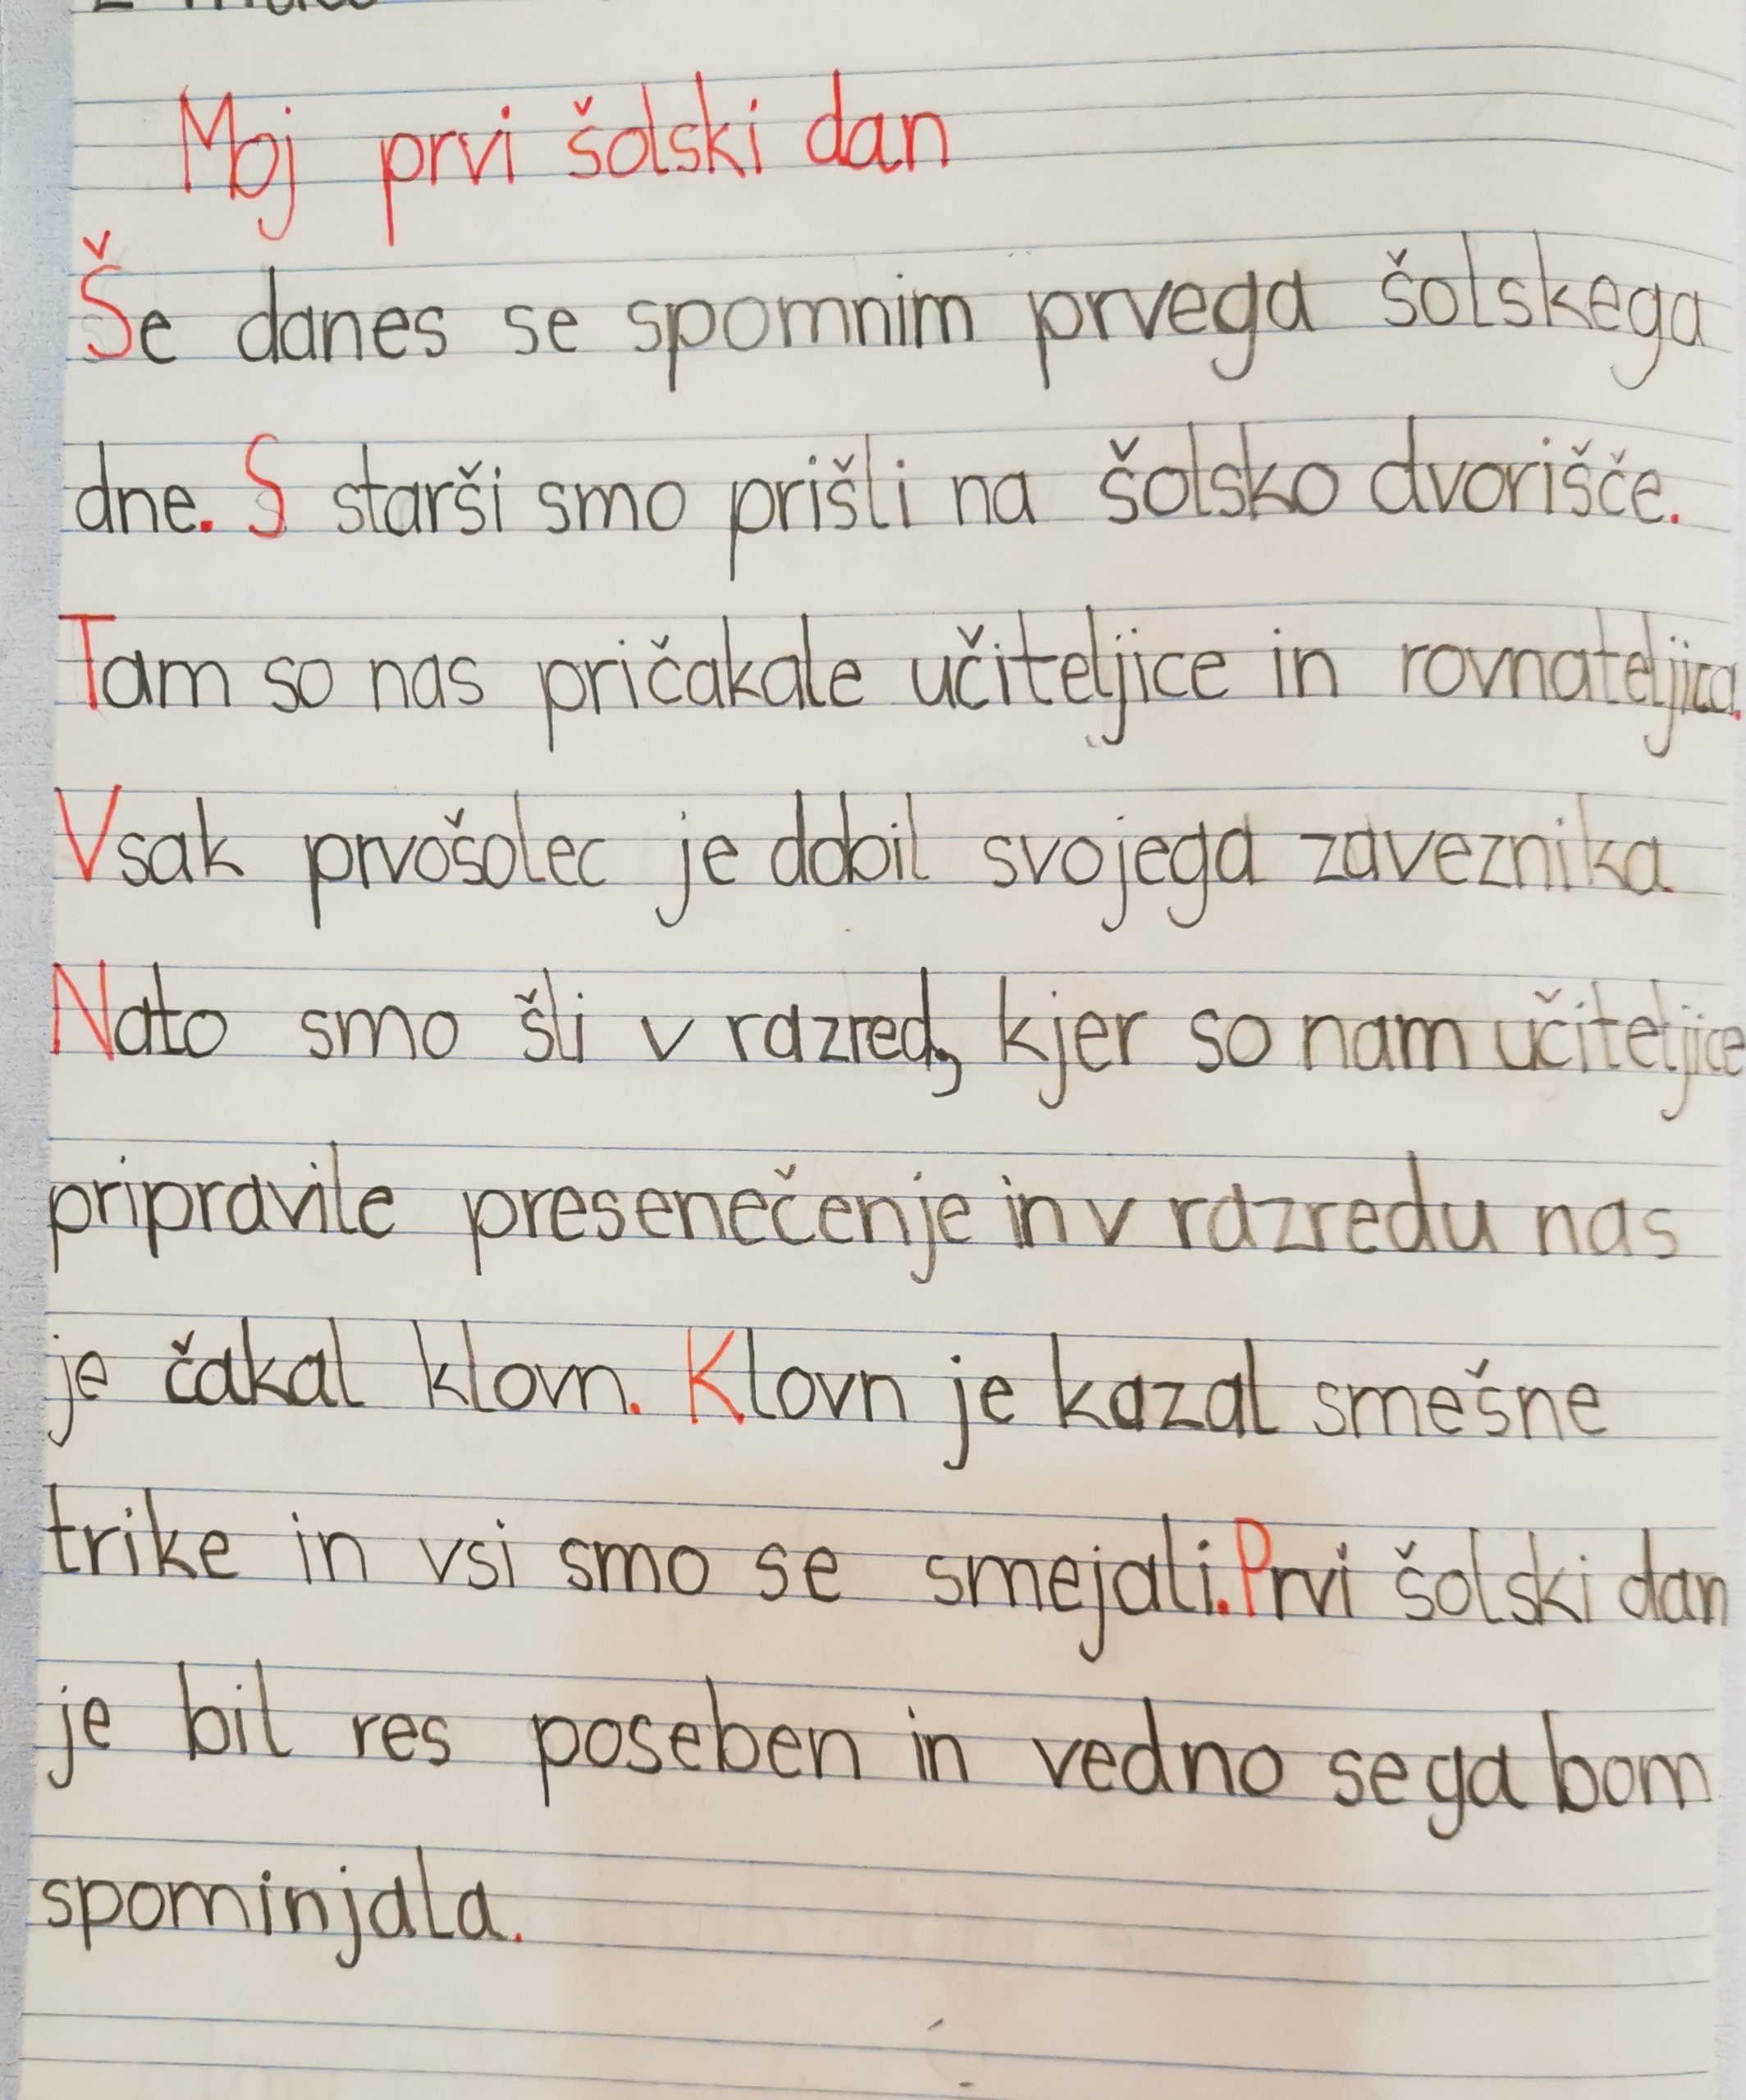 Moj prvi šolski dan
Še danes se spomnim prvega šolskega
dne. S starši smo prišli na šolsko dvorišče.
Tam so nas pričakale učiteljice in rovnateljica.
Vsak prvošolec je dobil svojega zaveznika
Nato smo šli v razred, kjer so nam učiteljice
pripravile presenečenje in v razredu nas
je čakal klovn. Klovn je kazal smešne
trike in vsi smo se smejali. Prvi šolski dan
je bil res poseben in vedno se ga bom
spominjala.